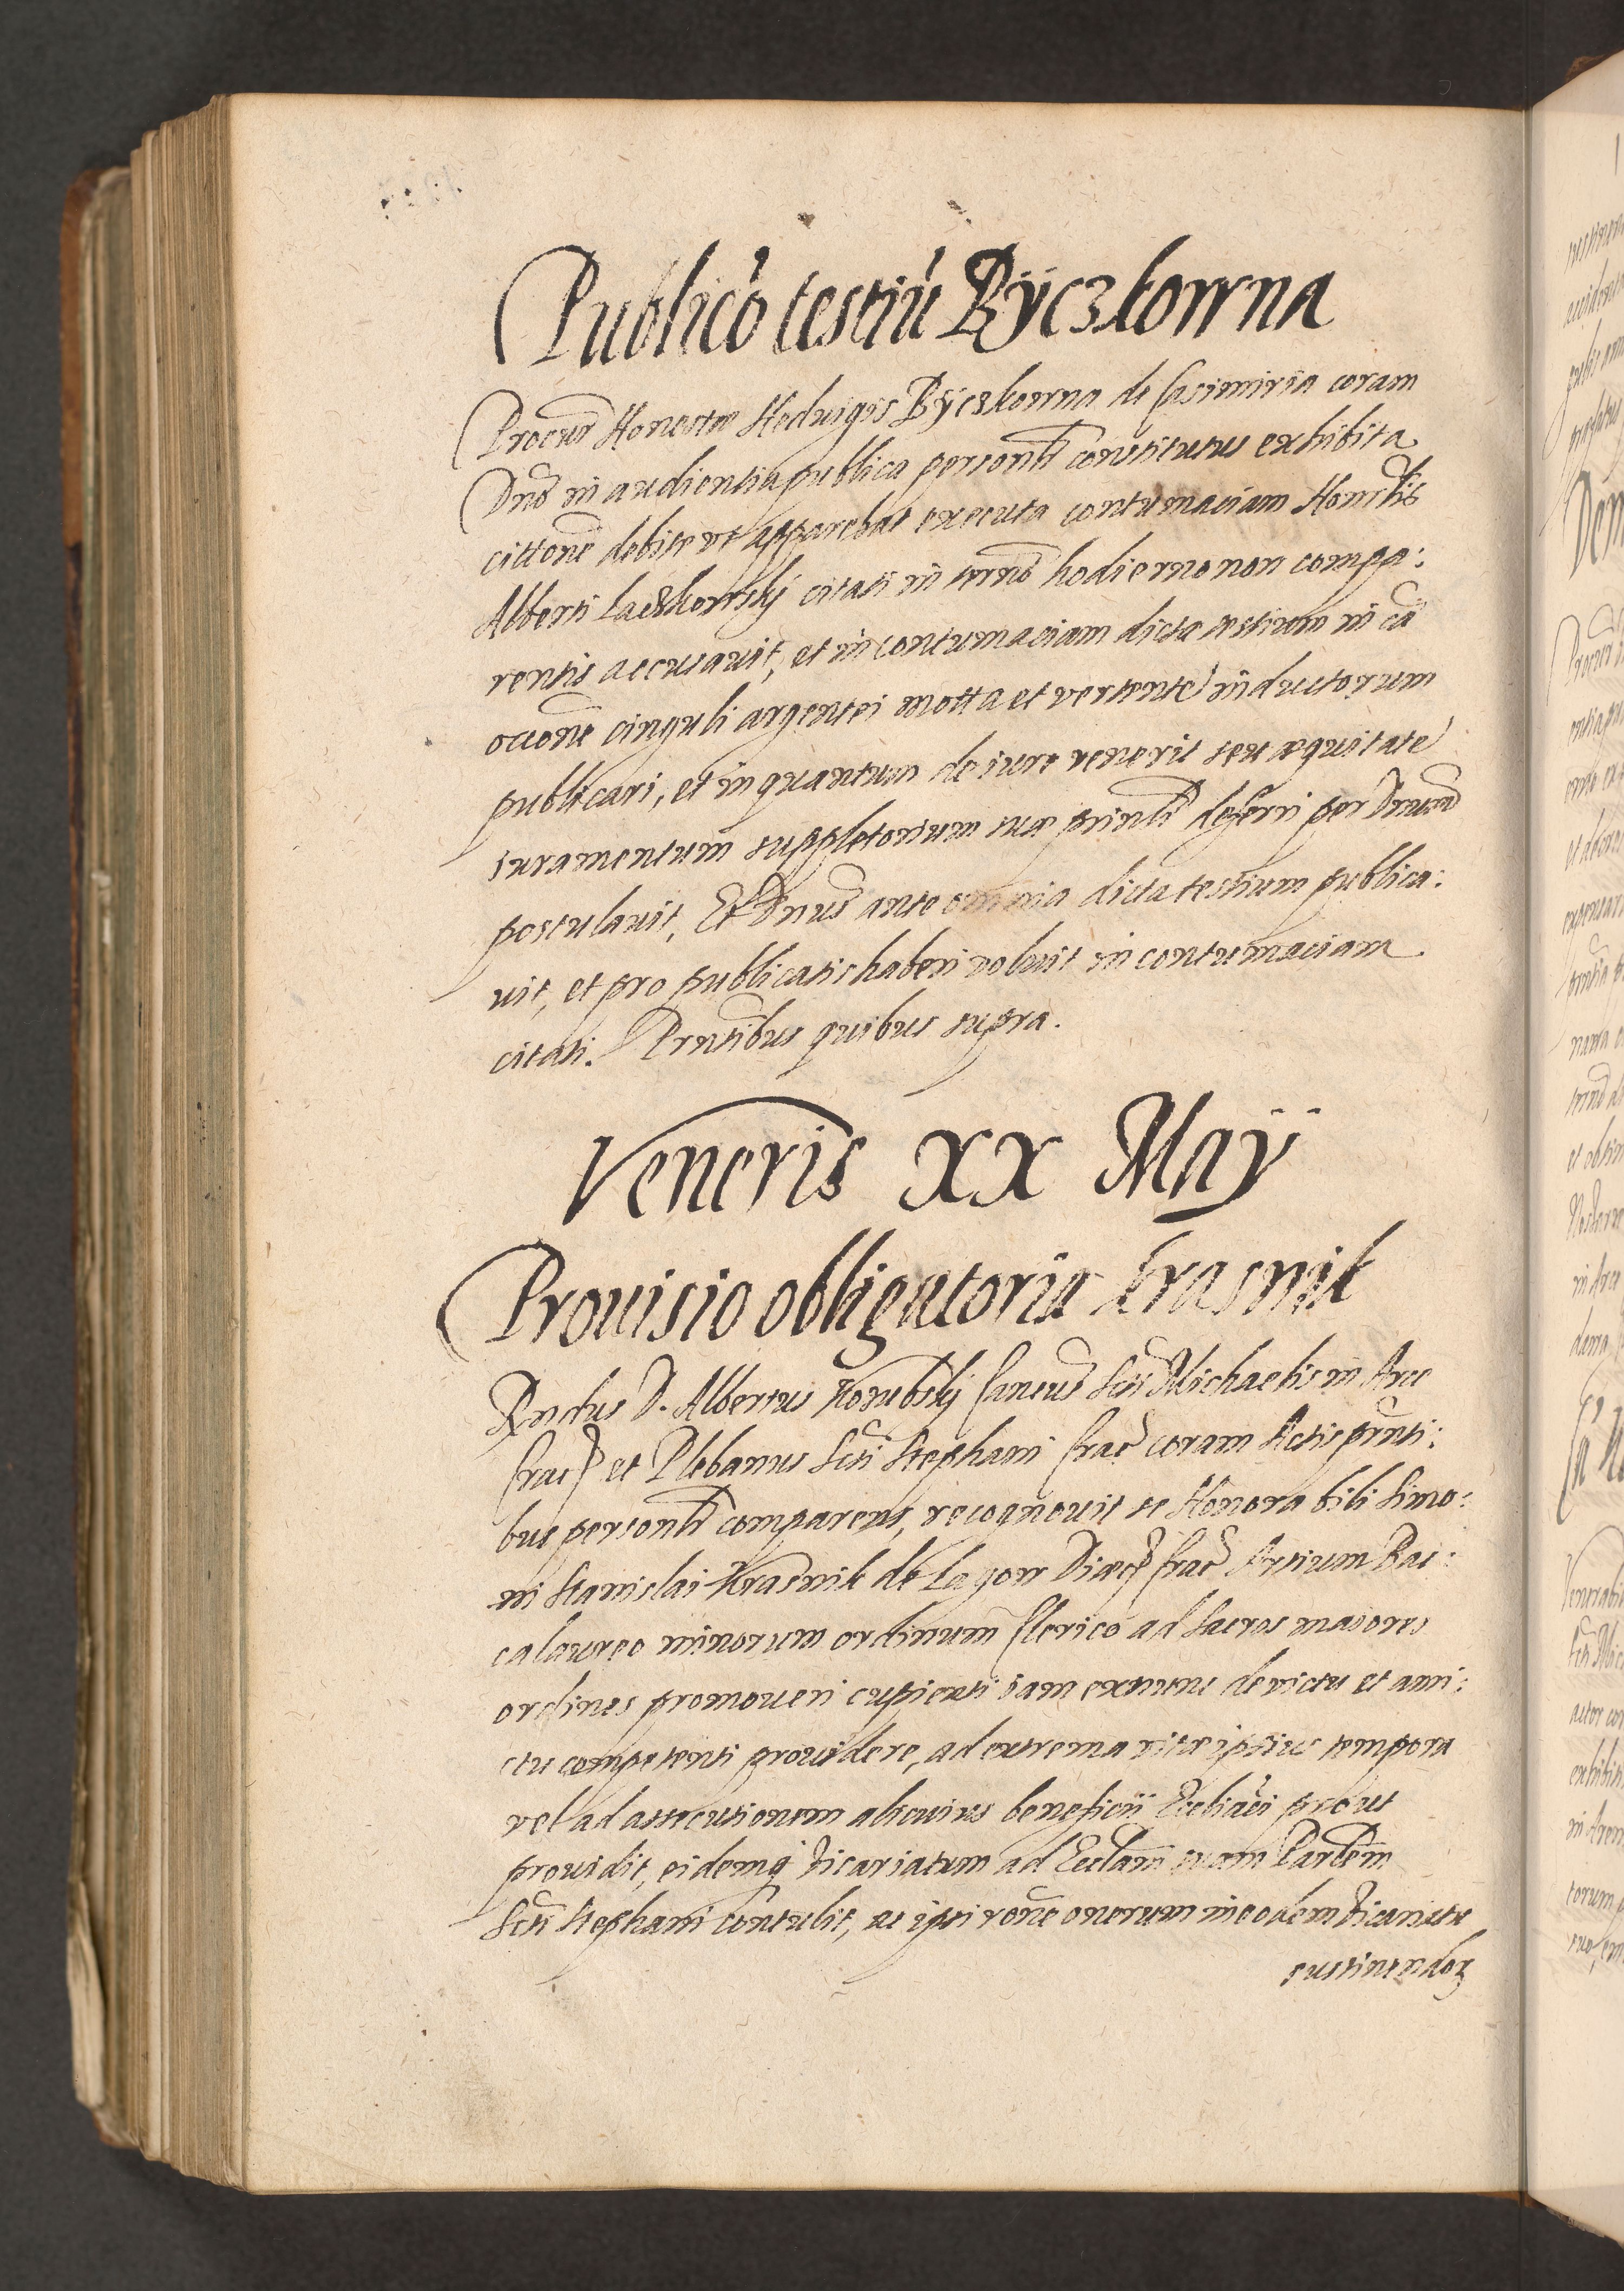 Publicõ testiũ Byczkowna
Procur Honestæ Hedvigis Byczkowna de Casimiria coram
Dno in audientia publica personlr constitutus exhibita
cittone debite vt apparebat executa contumaciam Honesti
Alberti Laczkowskj citati in termo hodierno non compa:
rentis accusauit, et in contumaciam dicta testium in ca
occone cinguli argentei motta et vertente inductorum
publicari, et in quantum de iure venerit seu æquitate
iuramentum suppletorium suæ prinli deferri per Dnum
postulauit, Et Dnus ante omnia dicta testium publica:
uit, et pro publicatis haberi voluit in contumaciam
citati. Prntibus quibus supra.
Veneris XX Maÿ
Prouisio obligatoria Krasnik
Rndus D. Albertus Korubskj Cancus Scti Michaelis in Arce
Crac et Plebanus Scti Stephani Crac coram Actis prnti:
bus personlr comparens, recognouit se Honorabili Simo:
ni Stanislai Krasnik de Lagow Diæc Crac Artium Bac:
calaureo minorum ordinum Clerico ad Sacros maiores
ordines promoueri cupienti iam extunc de victu et ami:
ctu competenti prouidere, ad extrema vitæ ipsius tempora
vel ad assecutionem alicuius beneficii Eccliaci prout
prouidit, eidemq Vicariatum ad Ecclam suam Parlem
Scti Stephani contulit, ac ipsi rone onerum in eodem Vicariatu
sustinendoꝝ